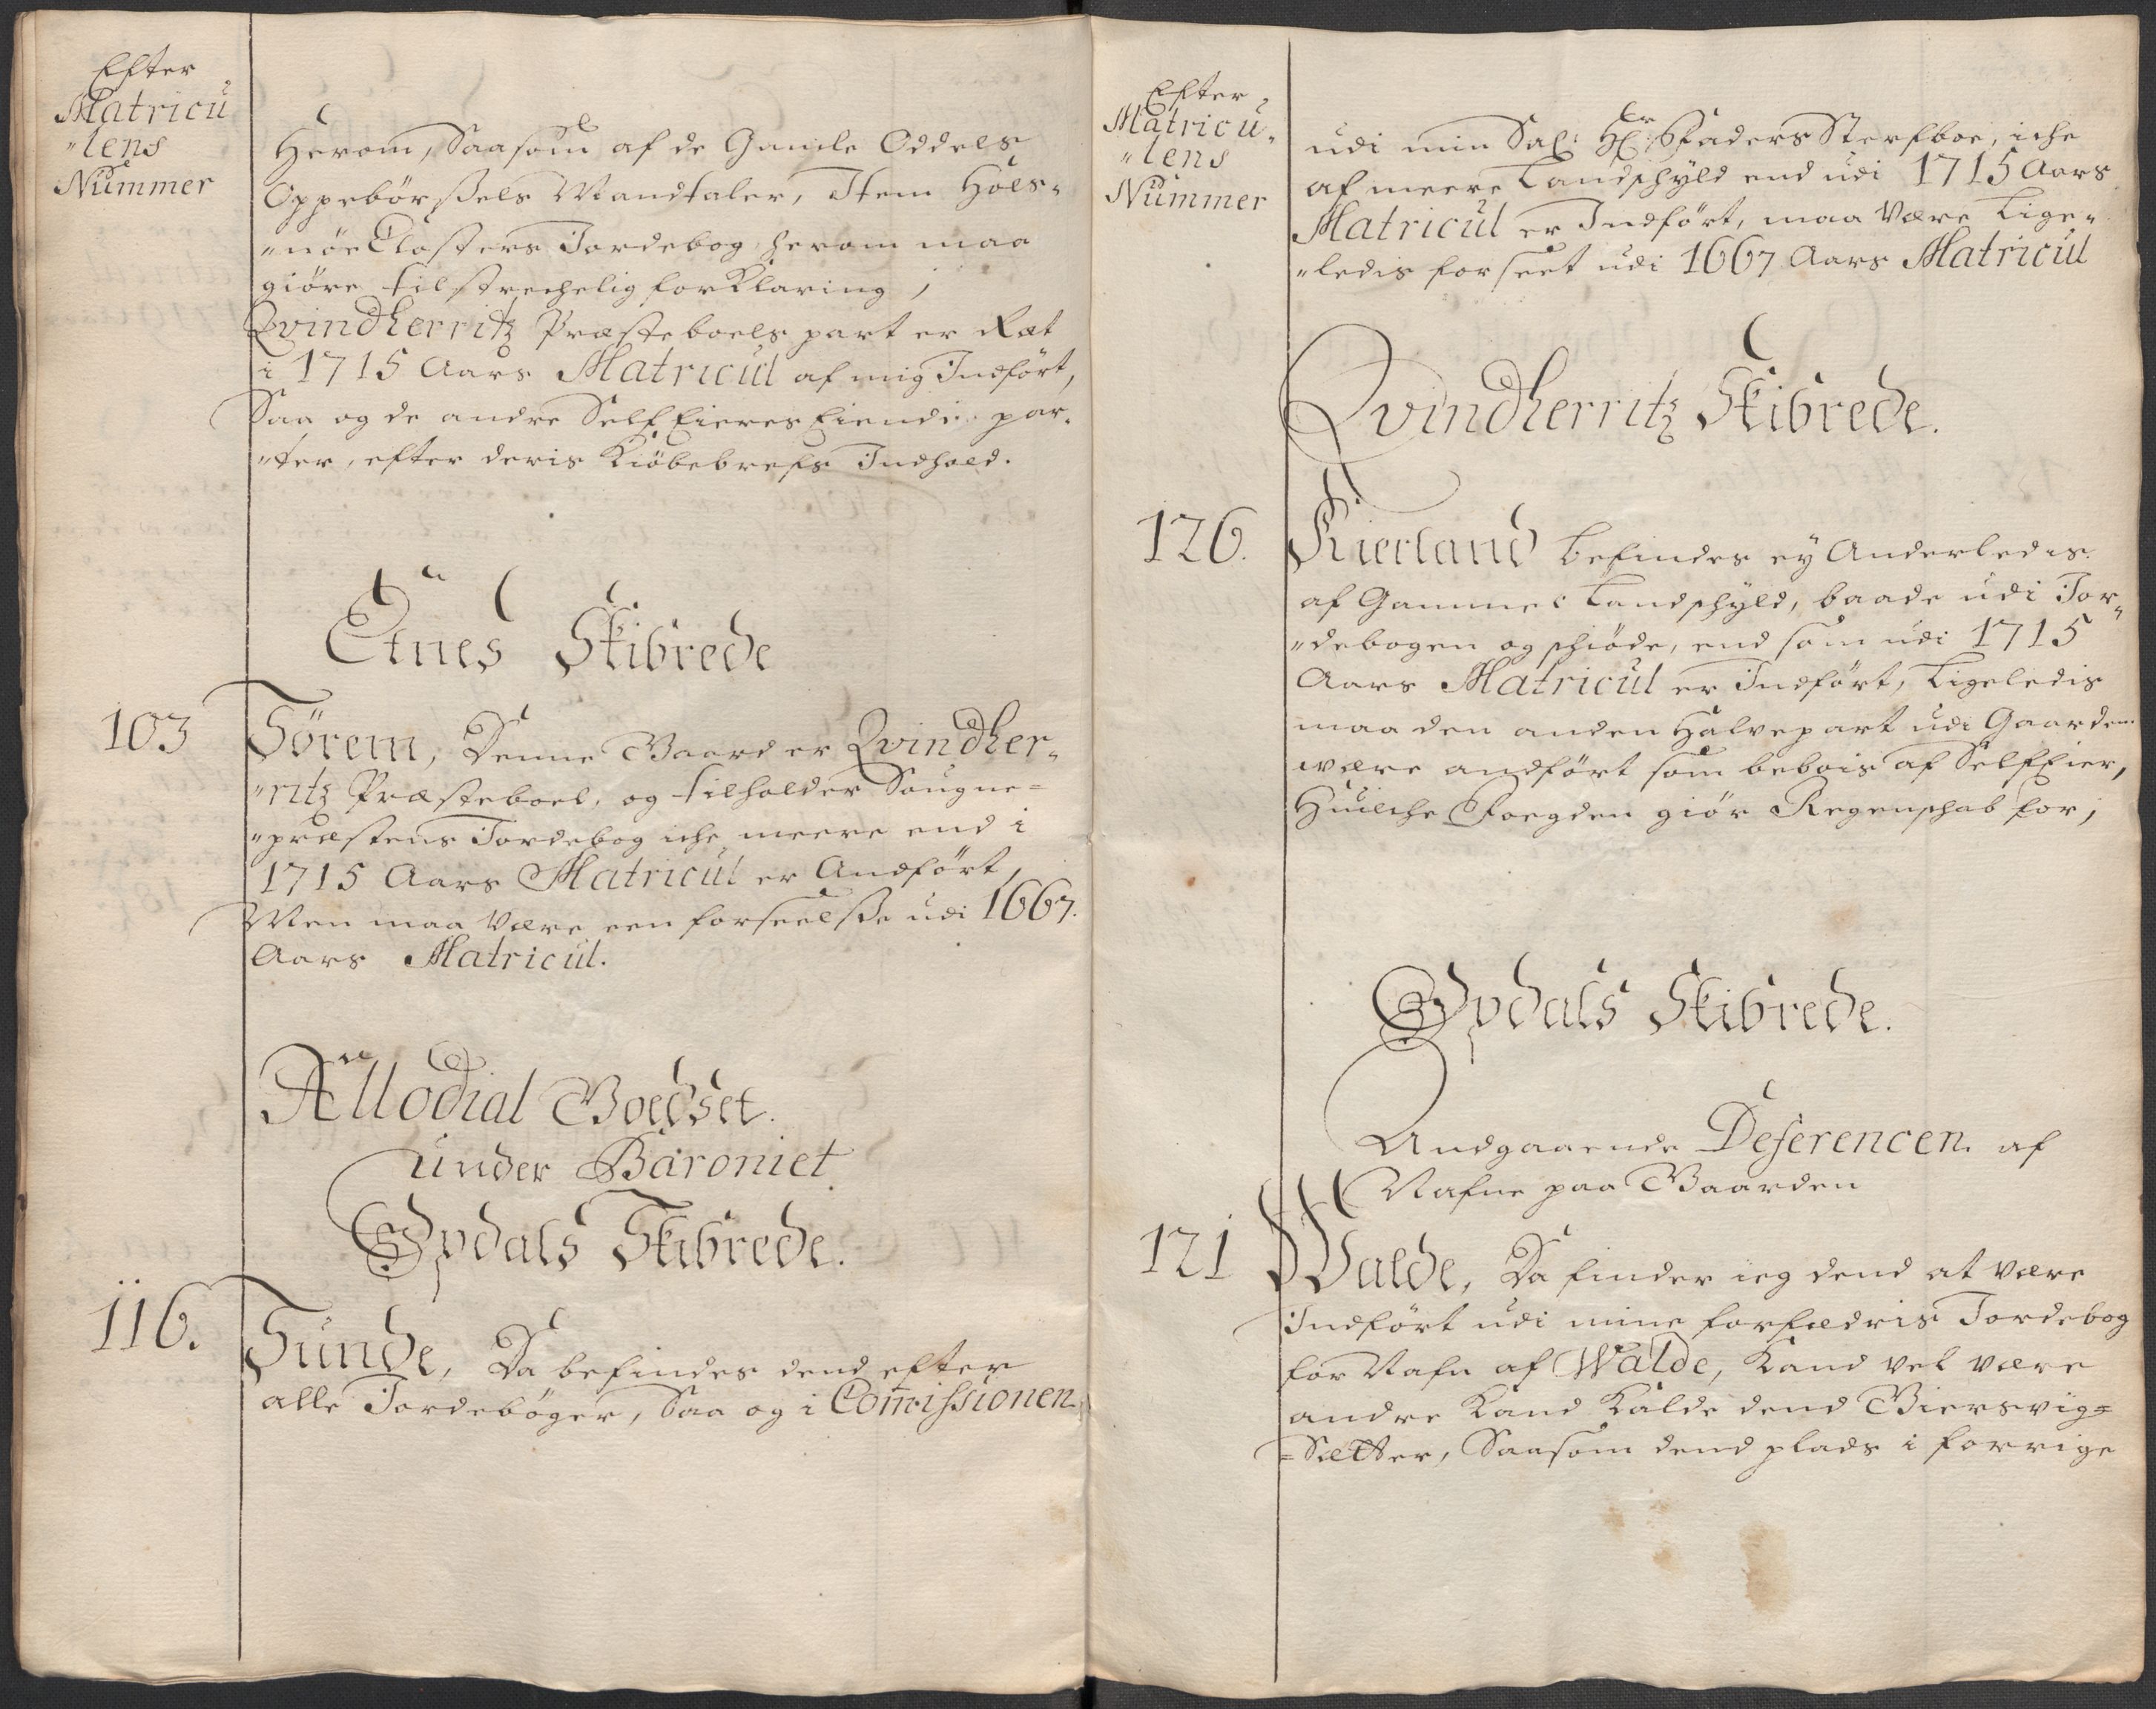 Efter
Matricu
"lens
Nummer
Herom, Saasom af de Gamle Oddels
Oppebörßels Mandtaler, Item Hols-
"nöe Closters Jordebog herom maa
giöre tilstrechelig forKlaring ;
Qvindherritz Præsteboels part er Ræt
i 1715 Aars Matricul af mig Indført,
Saa og de andre Self Eieres Eiendi par-
"ter, efter deris Kiöbebrefs Indhold.
Etnes Skibrede
103
Sörem, Denne Gaard er Qvindher-
"ritz Præsteboel, og tilholder Sougne=
"præstens Jordebog iche meere end i
1715 Aars Matricul er Andført,
Men maa Være een forseelße udi 1667.
Aars Matricul.
Allodial Goedset
under Baroniet
Opdals Skibrede.
116.
Sunde, Da befindes dend efter
alle Jordebøger, Saa og i Comissionen
Efter
Matricu-
"lens
Nummer
udi min Sal: Hr: Faders Sterfboe, iche
af meere Landschyld end udi 1715 Aars
Matricul er Indført, maa Være Lige-
"ledis forseet udi 1667 Aars Matricul
Qvindherritz Skibrede.
126.
Kierland befindes ey Anderledis
af Gammel Landschyld, baade udi Jor-
"debogen og schiöde, end som udi 1715
Aars Matricul er Indført, Ligeledis
maa den anden Halvepart udi Gaarden
være andført som bebois af SelfEier,
Huilche Foegden giör Regenschab for ;
Opdals Skibrede.
Andgaaende Deferencen af
Nafne paa Gaarden
121
Walde, Da finder ieg dend at være
Indført udi mine forfædris Jordebog
for Nafn af Walde, Kand vel være
andre Kand Kalde dend Giersvig=
=Sætter, Saasom dend plads i forrige